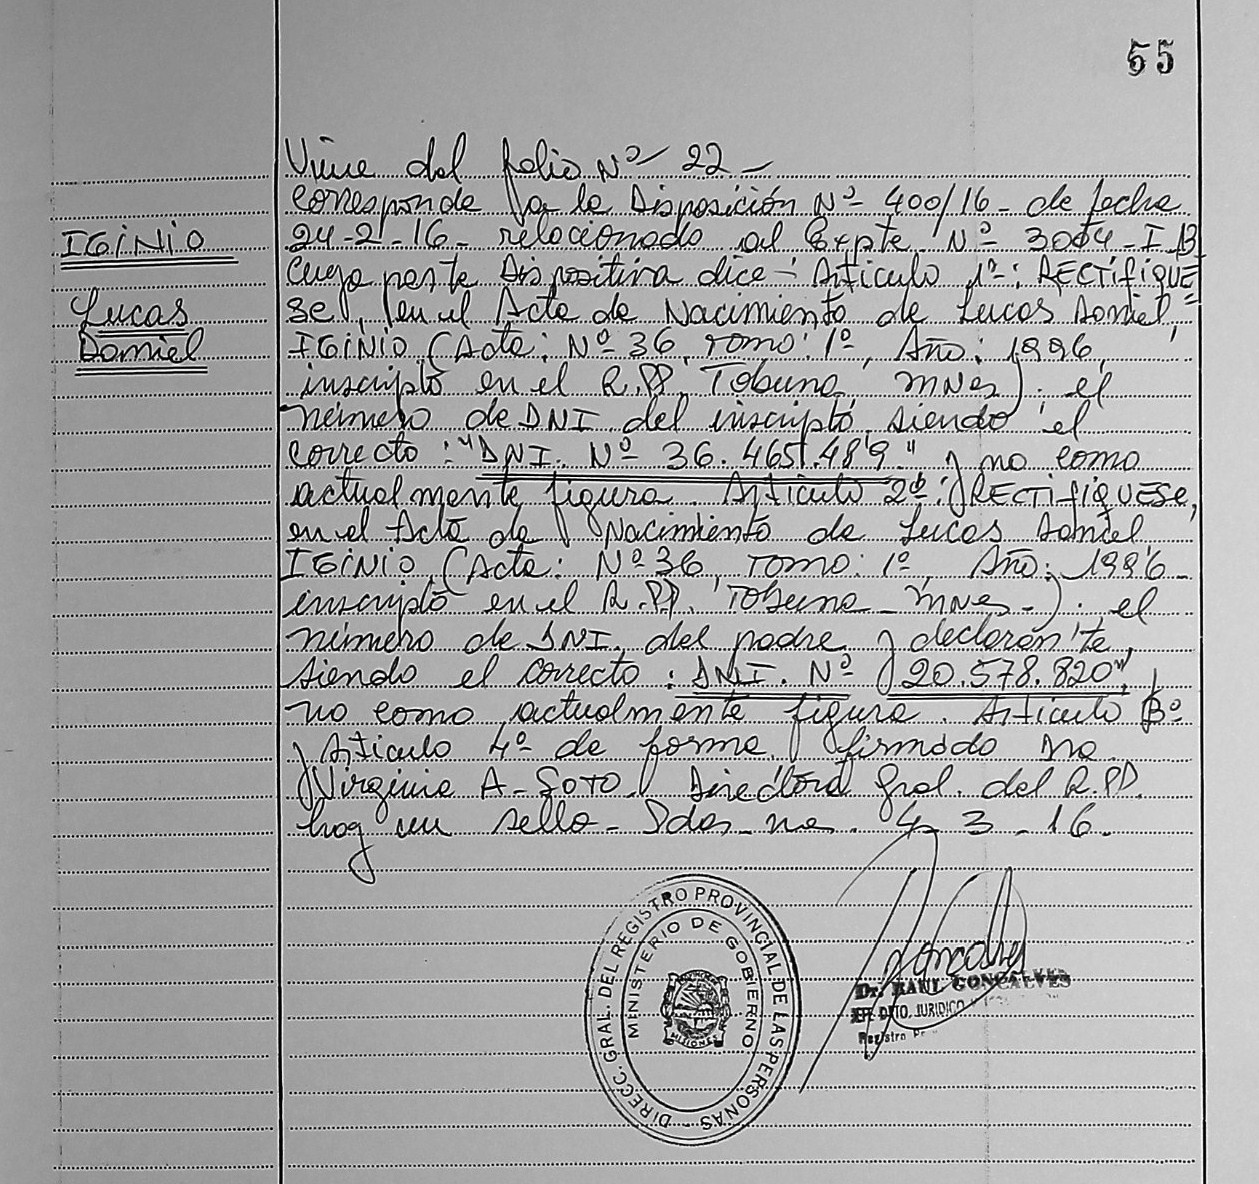 55
Viene del folio Nº 22 -
Corresponde a la Disposición Nº 400/16 - de fecha
IGiNiO
24-2-16- relacionado al Expte Nº 3064-I-B
Cuya parte Dispositiva dice: Artículo 1º: RECTifiQUE
Lucas
se, en el Acta de Nacimiento de Lucas Daniel,
Daniel
IGiNiO (Acta: Nº 36, Tomo: 1º, Año: 1996,
inscripto en el R.PP. Tobuna, mnes). el
número de DNI del inscripto, siendo el
correcto: "DNI. Nº 36.465.489." y no como
actualmente figura. Artículo 2º: RECTifiQUESe,
en el Acta de Nacimiento de Lucas Daniel
IGiNiO (Acta: Nº 36, Tomo: 1º, Año: 1996-
inscripto en el R.PP. Tobuna - mnes-). el
número de DNI, del padre y declarante,
siendo el correcto: DNI. Nº 20.578.820", y
no como actualmente figura. Artículo 3º
y Artículo 4º de forma, firmado Dra
Virginia A- SOTO - Directora Gral. del R.PP.
hay un sello - Pdas - nes. 4 3 - 16.
DIRECC. GRAL. DEL REGISTRO PROVINCIAL DE LAS PERSONAS
MINISTERIO DE GOBIERNO
MISIONES
Dr. RAUL GONCALVES
DPTO. JURIDICO
Registro